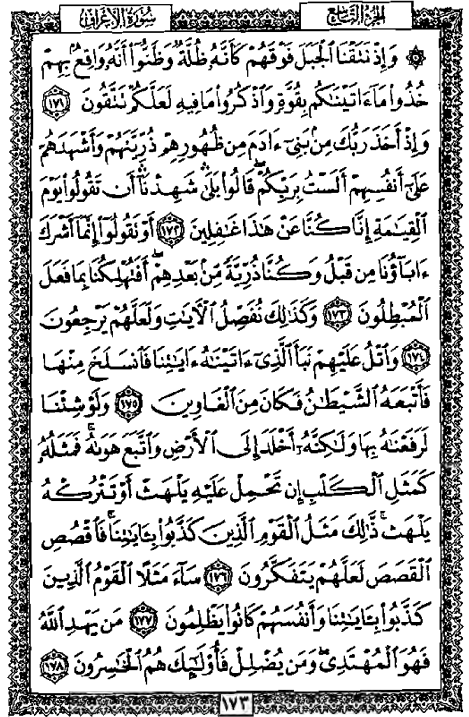 سُورَةُ الأَعْرَافِ
الجُزْءُ التَّاسِعُ
۞ وَإِذْ نَتَقْنَا ٱلْجَبَلَ فَوْقَهُمْ كَأَنَّهُۥ ظُلَّةٌ وَظَنُّوٓا۟ أَنَّهُۥ وَاقِعٌۢ بِهِمْ
خُذُوا۟ مَآ ءَاتَيْنَٰكُم بِقُوَّةٍ وَٱذْكُرُوا۟ مَا فِيهِ لَعَلَّكُمْ تَتَّقُونَ ١٧١
وَإِذْ أَخَذَ رَبُّكَ مِنۢ بَنِىٓ ءَادَمَ مِن ظُهُورِهِمْ ذُرِّيَّتَهُمْ وَأَشْهَدَهُمْ
عَلَىٰٓ أَنفُسِهِمْ أَلَسْتُ بِرَبِّكُمْ ۖ قَالُوا۟ بَلَىٰ ۛ شَهِدْنَآ ۛ أَن تَقُولُوا۟ يَوْمَ
ٱلْقِيَٰمَةِ إِنَّا كُنَّا عَنْ هَٰذَا غَٰفِلِينَ ١٧٢ أَوْ تَقُولُوٓا۟ إِنَّمَآ أَشْرَكَ
ءَابَآؤُنَا مِن قَبْلُ وَكُنَّا ذُرِّيَّةً مِّنۢ بَعْدِهِمْ ۖ أَفَتُهْلِكُنَا بِمَا فَعَلَ
ٱلْمُبْطِلُونَ ١٧٣ وَكَذَٰلِكَ نُفَصِّلُ ٱلْءَايَٰتِ وَلَعَلَّهُمْ يَرْجِعُونَ
١٧٤ وَٱتْلُ عَلَيْهِمْ نَبَأَ ٱلَّذِىٓ ءَاتَيْنَٰهُ ءَايَٰتِنَا فَٱنسَلَخَ مِنْهَا
فَأَتْبَعَهُ ٱلشَّيْطَٰنُ فَكَانَ مِنَ ٱلْغَاوِينَ ١٧٥ وَلَوْ شِئْنَا
لَرَفَعْنَٰهُ بِهَا وَلَٰكِنَّهُۥٓ أَخْلَدَ إِلَى ٱلْأَرْضِ وَٱتَّبَعَ هَوَىٰهُ ۚ فَمَثَلُهُۥ
كَمَثَلِ ٱلْكَلْبِ إِن تَحْمِلْ عَلَيْهِ يَلْهَثْ أَوْ تَتْرُكْهُ
يَلْهَث ۚ ذَّٰلِكَ مَثَلُ ٱلْقَوْمِ ٱلَّذِينَ كَذَّبُوا۟ بِـَٔايَٰتِنَا ۚ فَٱقْصُصِ
ٱلْقَصَصَ لَعَلَّهُمْ يَتَفَكَّرُونَ ١٧٦ سَآءَ مَثَلًا ٱلْقَوْمُ ٱلَّذِينَ
كَذَّبُوا۟ بِـَٔايَٰتِنَا وَأَنفُسَهُمْ كَانُوا۟ يَظْلِمُونَ ١٧٧ مَن يَهْدِ ٱللَّهُ
فَهُوَ ٱلْمُهْتَدِى ۖ وَمَن يُضْلِلْ فَأُو۟لَٰٓئِكَ هُمُ ٱلْخَٰسِرُونَ ١٧٨
١٧٣